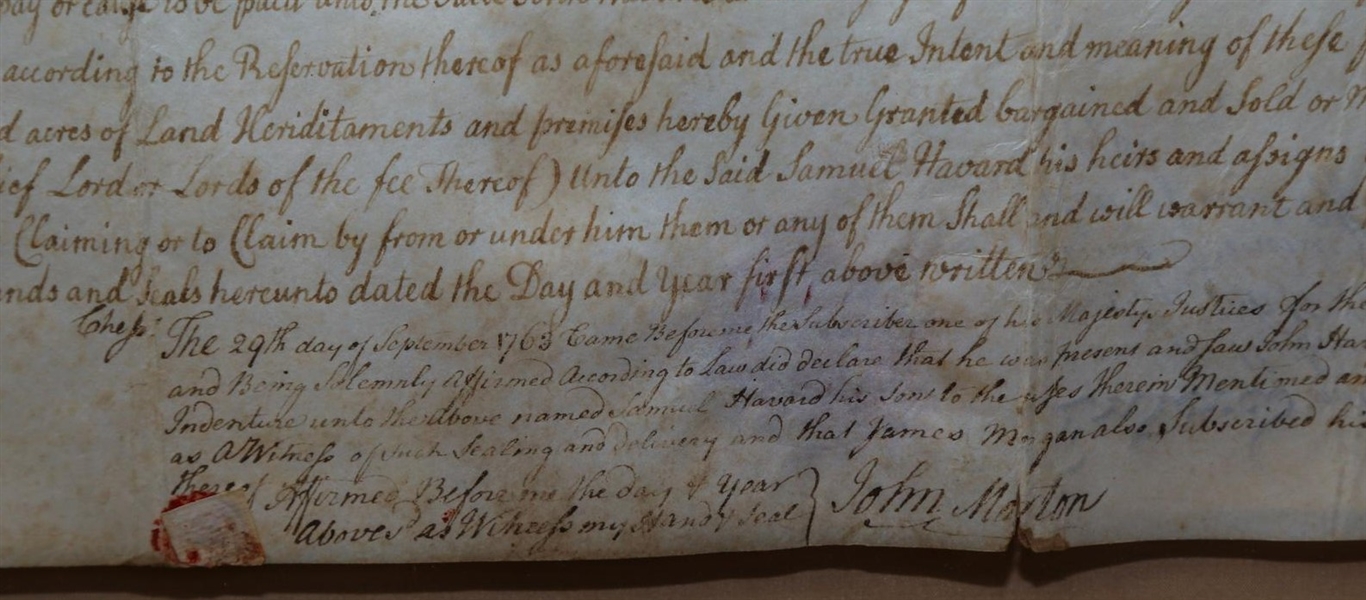 pay or cause to be paid unto the said
according to the Reservation thereof as aforesaid and the true Intent and meaning of these
d acres of Land Heriditaments and premises hereby Given Granted bargained and Sold or
ief Lord or Lords of the fee Thereof) Unto the Said Samuel Havard his heirs and assigns
Claiming or to Claim by from or under him them or any of them Shall and will warrant and
nds and Seals hereunto dated the Day and Year first above written
Chess: The 29th day of September 1763 Came Before me the Subscriber one of his Majestys Justices for the
and Being Solemnly Affirmed According to Law did declare that he was present and saw John Hav
Indenture unto the Above named Samuel Havard his Son to the uses therein Mentioned an
as A Witness of such Sealing and delivery and that James Morgan also Subscribed his
thereof Affirmed Before me the day & Year
Aboves as Witness my Hand & Seal
John Morton